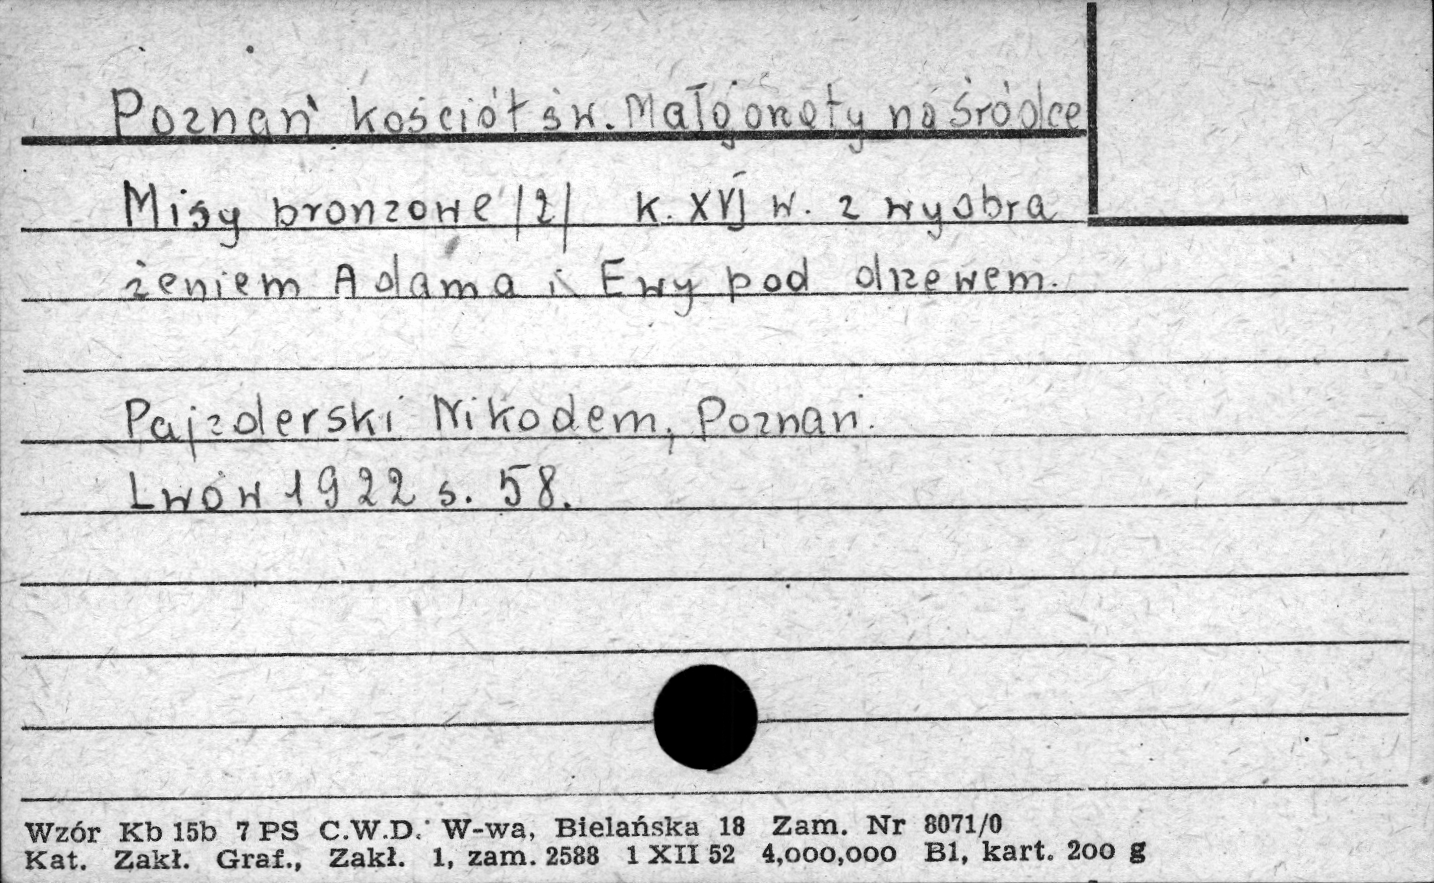 Poznań kościół św. Małgorzaty na Śródce
Misy bronzowe /2/ k. XVI w. z wyobra
żeniem Adama i Ewy pod drzewem.
Pajzderski Nikodem, Poznań.
Lwów 1922 s. 58.
Wzór Kb 15b 7 PS C.W.D. W-wa, Bielańska 18 Zam. Nr 8071/0
Kat. Zakł. Graf., Zakł. 1, zam. 2588 1 XII 52 4,000,000 B1, kart. 200 g